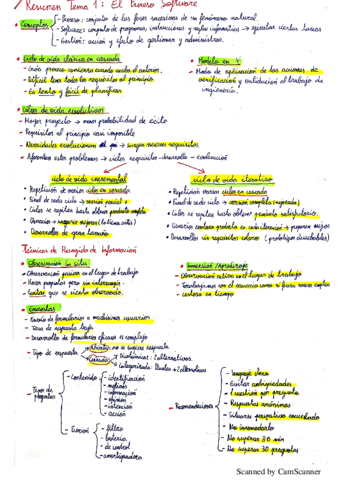 Resumen Tema 1: El Proceso Software
Conceptos
- Proceso: conjunto de las fases sucesivas de un fenómeno natural.
- Software: conjunto de programas, instrucciones y reglas informáticas → ejecutar ciertas tareas
- Gestión: acción y efecto de gestionar y administrar.
Ciclo de vida clásico en cascada
- Cada proceso comienza cuando acaba el anterior.
- Difícil tener todos los requisitos al principio.
- Es lento y fácil de planificar
Modelo en V
- Modo de aplicación de las acciones de verificación y validación al trabajo de ingeniería.
Ciclos de vida evolutivos
- Mayor proyecto → menor probabilidad de éxito
- Requisitos al principio casi imposible
- Necesidades evolucionan → surgen nuevos requisitos
- Afrontar estos problemas → ciclos requisitos - desarrollo - evaluación
ciclo de vida incremental
- Repetición de varios ciclos en cascada
- Final de cada ciclo → versión parcial
- Ciclos se repiten hasta obtener producto completo
- Desarrollo de gran tamaño
ciclo de vida iterativo
- Repetición varios ciclos en cascada
- Final de cada ciclo → versión completa (mejorada)
- Ciclos se repiten hasta obtener producto satisfactorio.
- Usuarios evalúan producto en cada iteración → proponen mejoras
- Desarrollos sin requisitos claros (prototipos desechables)
Técnicas de Recogida de Información
Observación in situ
- Observación pasiva en el lugar de trabajo
- Hacer preguntas pero sin interrumpir
- Evitar que se sienta observado.
Inmersión/Aprendizaje
- Observación activa en el lugar de trabajo
- Trabajamos con el usuario como si fuera nuevo
- costoso en tiempo
Encuestas
- Envío de formularios a muchísimos usuarios
- Tasa de respuesta baja
- Desarrollo de formularios eficaces es complejo
- Tipo de respuesta
Abierta: no se sugiere respuesta
Cerrada
- Dicotómicas: 2 alternativas.
- Categorizada: Varias +2 alternativas
- Tipos de preguntas
- Contenido
- identificación
- información
- opinión
- intención
- acción
- Función
- filtro
- batería
- de control
- amortiguadora
- Recomendaciones
- Lenguaje claro
- Evitar ambigüedades
- 1 cuestión por pregunta
- Respuestas anónimas
- Situarse perspectiva encuestado
- No incomodarlo
- No superar 30 min
- No superar 30 preguntas
Scanned by CamScanner